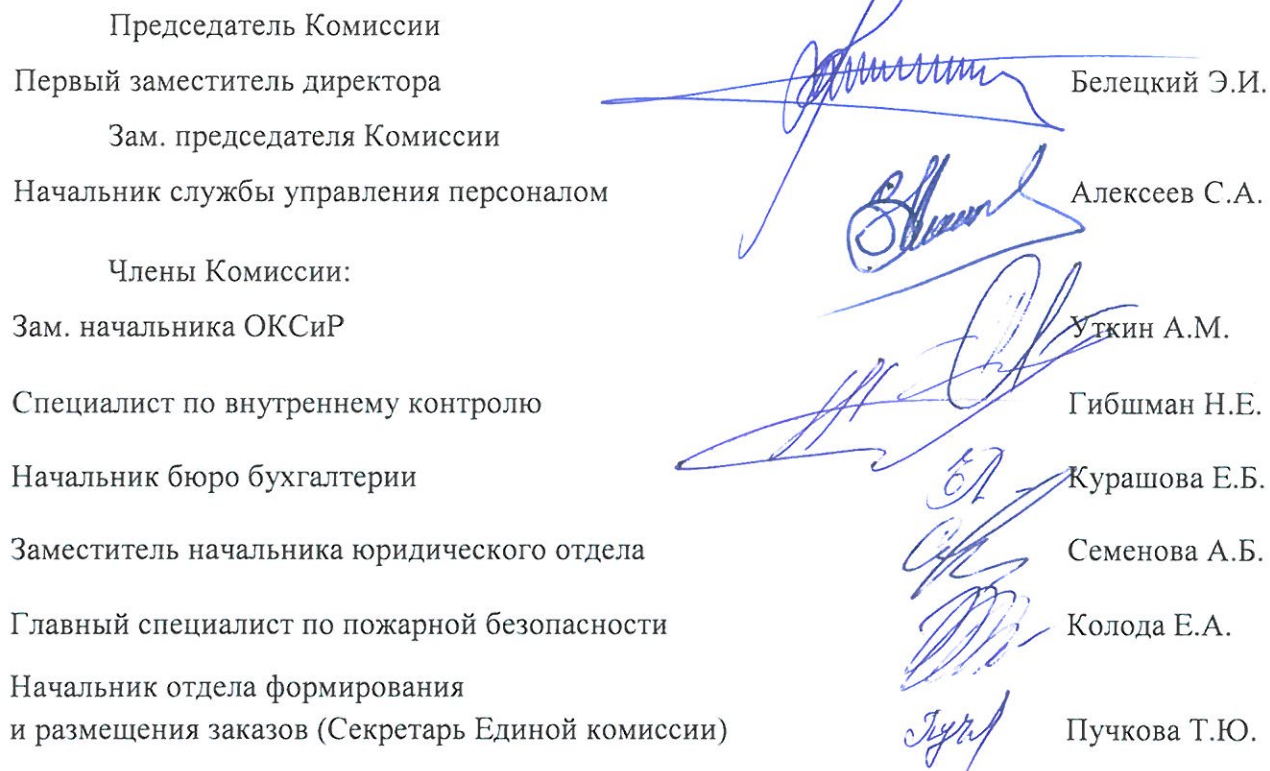 Председатель Комиссии
Первый заместитель директора Белецкий Э.И.
Зам. председателя Комиссии
Начальник службы управления персоналом Алексеев С.А.
Члены Комиссии:
Зам. начальника ОКСиР Уткин А.М.
Специалист по внутреннему контролю Гибшман Н.Е.
Начальник бюро бухгалтерии Курашова Е.Б.
Заместитель начальника юридического отдела Семенова А.Б.
Главный специалист по пожарной безопасности Колода Е.А.
Начальник отдела формирования
и размещения заказов (Секретарь Единой комиссии) Пучкова Т.Ю.